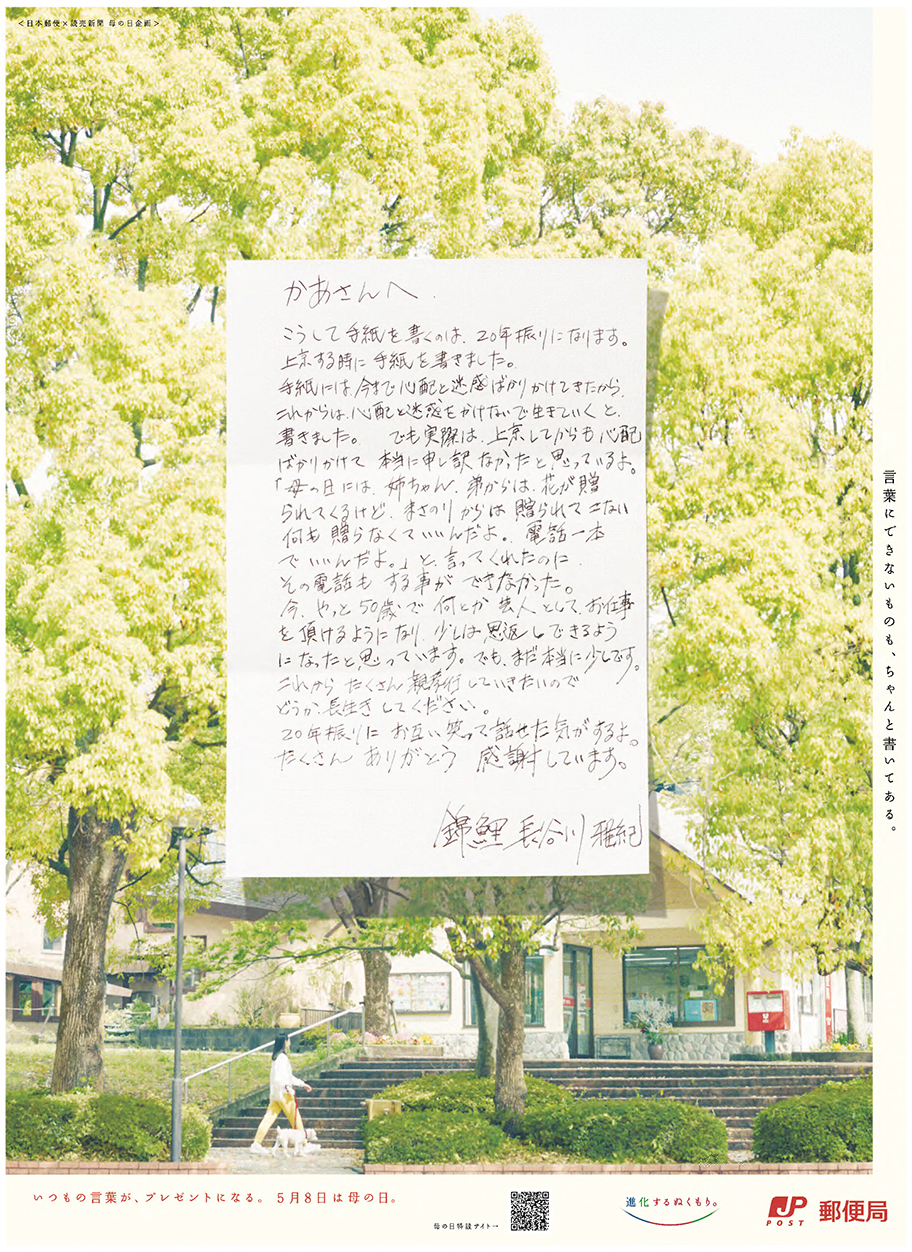 <日本郵便×読売新聞 母の日企画>
かあさんへ.
こうして手紙を書くのは、20年振りになります。
上京する時に手紙を書きました。
手紙には、今まで心配と迷惑ばかりかけてきたから、
これからは、心配と迷惑をかけないで生きていくと、
書きました。 でも実際は、上京してからも心配
ばかりかけて 本当に申し訳なかったと思っているよ。
「母の日には、姉ちゃん、弟からは、花が贈
られてくるけど、まさのりからは贈られてこない
何も贈らなくていいんだよ。電話一本
でいいんだよ。」と、言ってくれたのに、
その電話も する事が できなかった。
今、やっと50歳で何とか芸人として、お仕事
を頂けるようになり、少しは恩返しできるよう
になったと思っています。でも、まだ本当に少しです。
これから たくさん親孝行していきたいので
どうか、長生きしてください。
20年振りに お互い笑って話せた気がするよ。
たくさん ありがとう 感謝しています。
錦鯉 長谷川 雅紀
言葉にできないものも、ちゃんと書いてある。
いつもの言葉が、プレゼントになる。 5月8日は母の日。
母の日特設サイト→
進化するぬくもり。
JP POST 郵便局